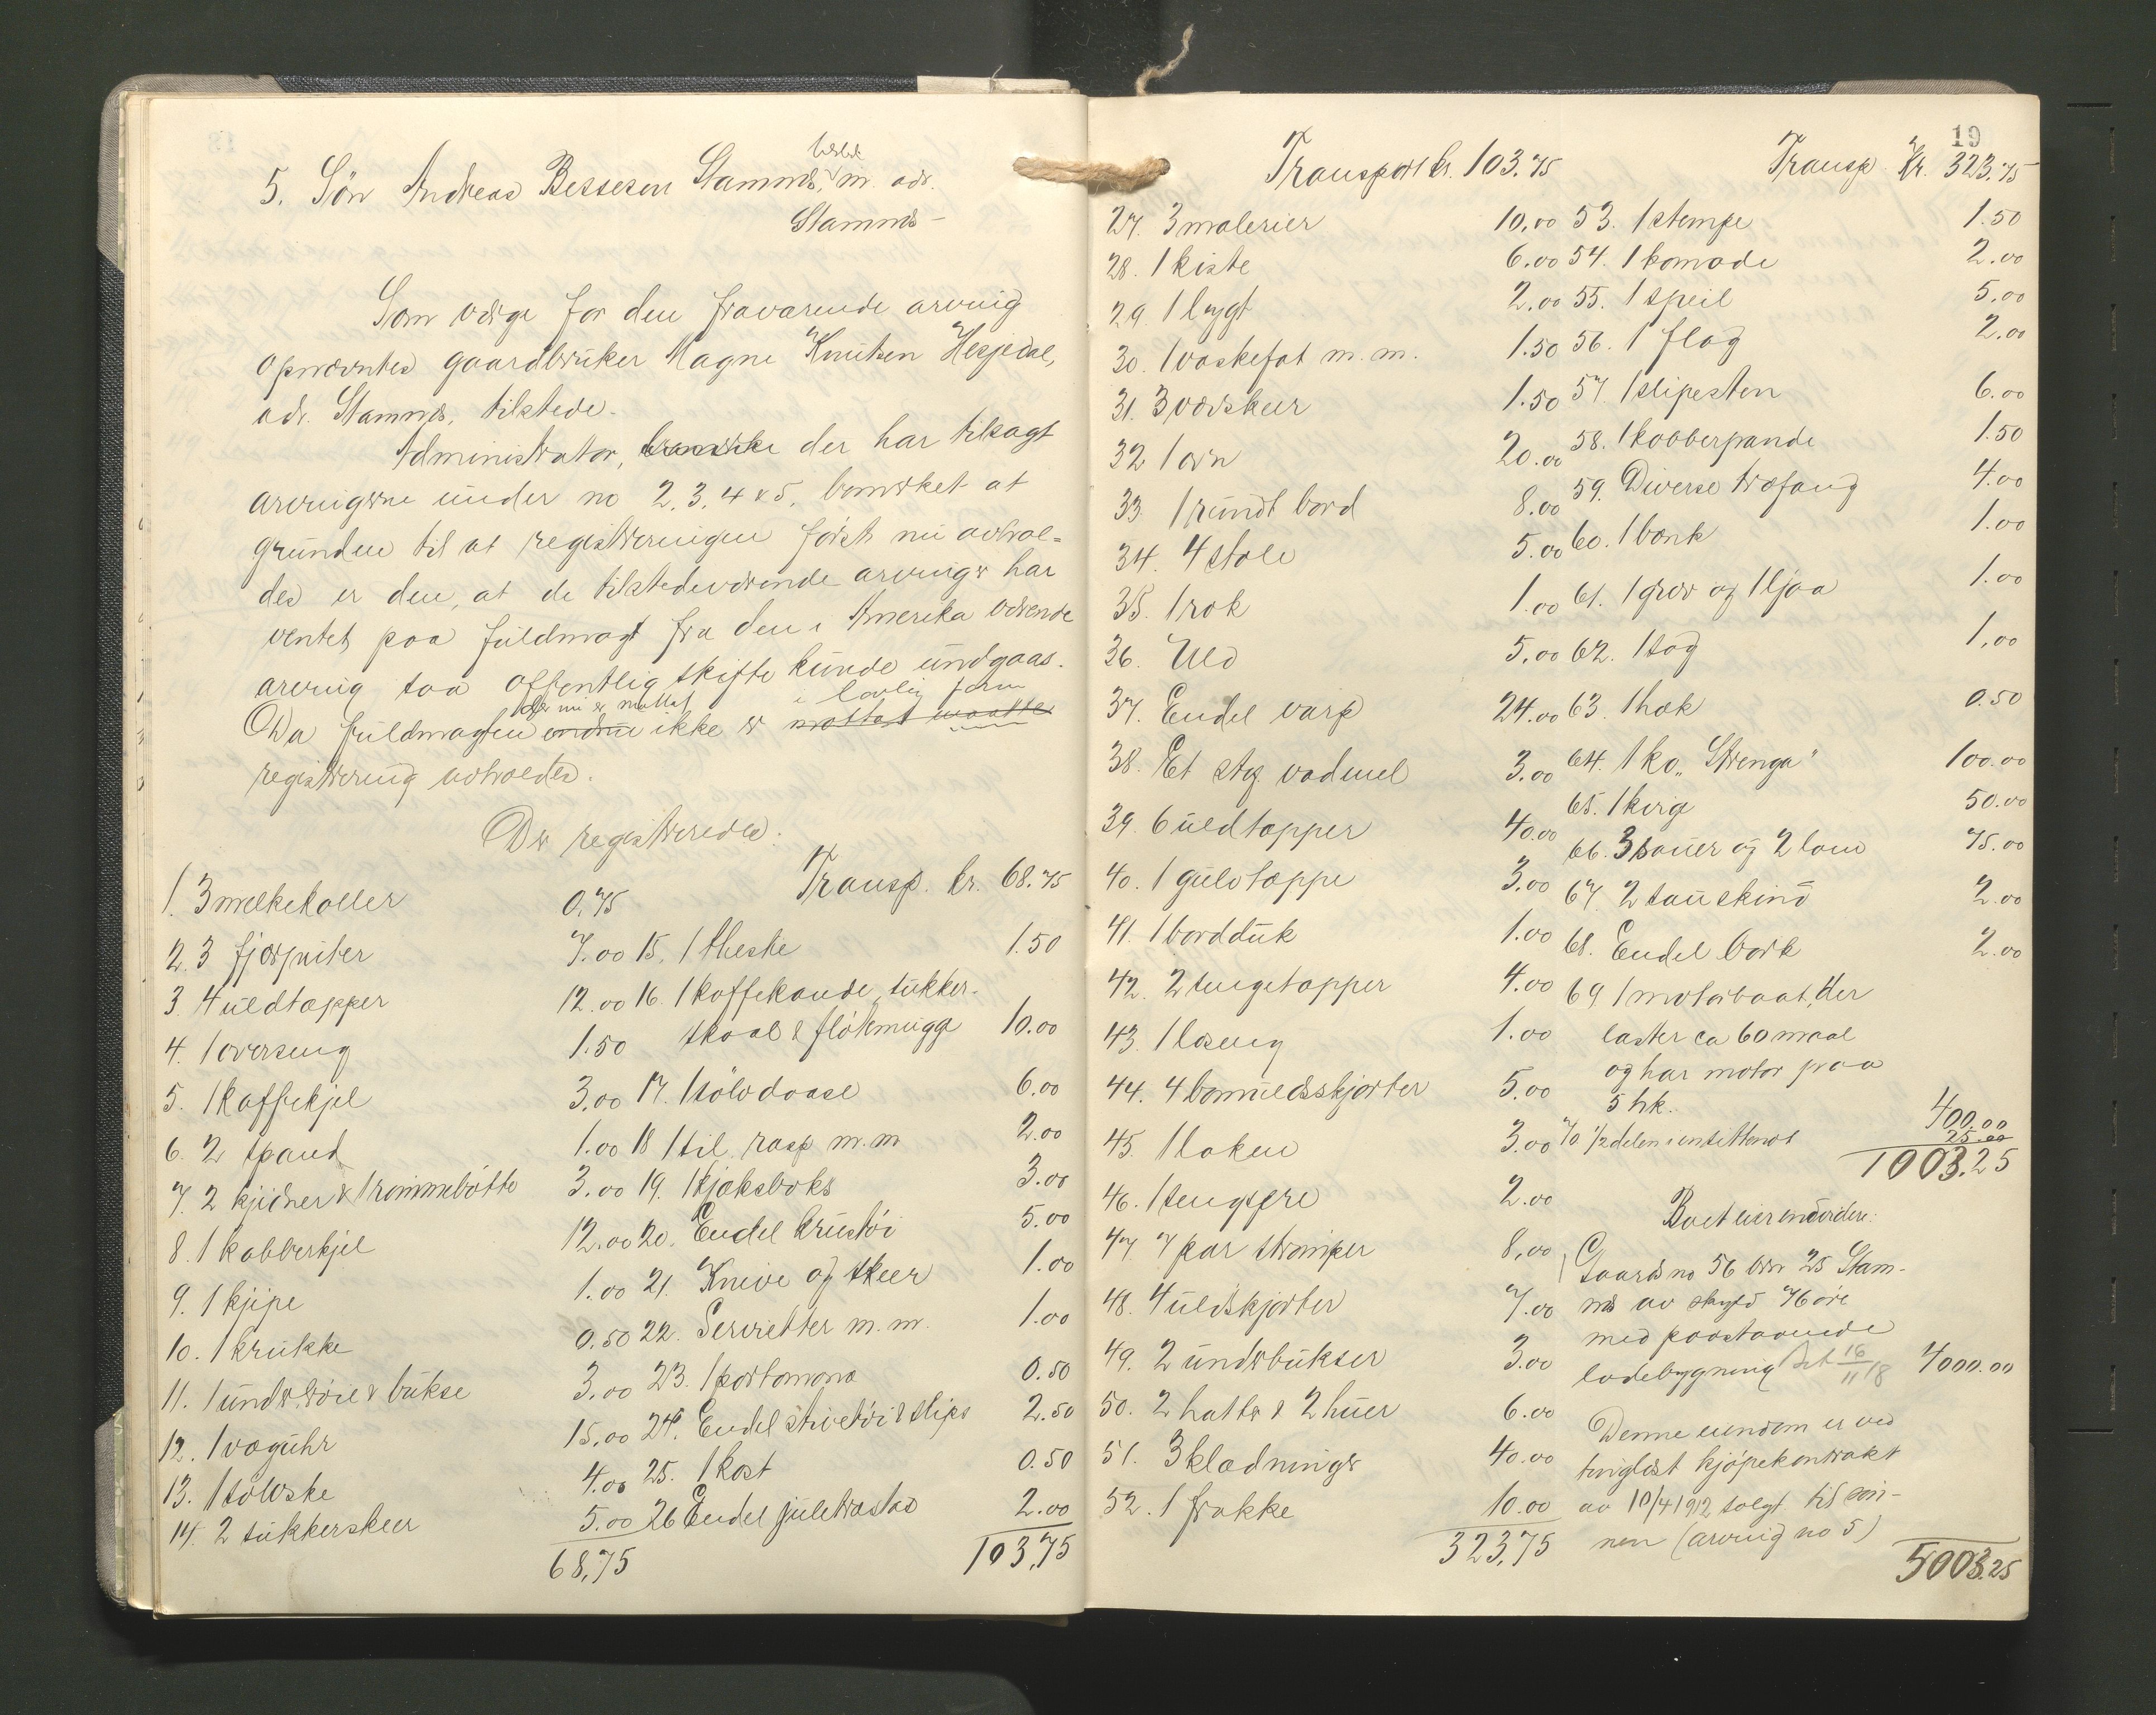 5. Søn Andreas Bessesen Stamnes, m. adr.
Stamnes –
Som verge for den fraværende arving
opnævntes gaardbruker Magne Knutsen Hesjedal,
adr. Stamnes, tilstede.
Administrator, der har tilsagt
arvingerne under no 2, 3, 4 & 5, bemerket at
grunden til at registreringen først nu avhol-
des er den, at de tilstedeværende arvinger har
ventet paa fuldmagt fra den i Amerika værende
arving saa offentlig skifte kunde undgaas.
der nu er mottat i lovlig form
Da fuldmagten endnu ikke er mottat maatte
registrering avholdes.
Der registreredes:
1. 3 melkekoller 0,75
2. 3 fjærputer 7.00
3. 4 uldtæpper 12.00
4. 1 overseng 1.50
5. 1 kaffekjel 3.00
6. 2 spand 1.00
7. 2 kjidner & 1 rømmebøtte 3.00
8. 1 kobberkjel 12.00
9. 1 kjipe 1.00
10. 1 krukke 0.50
11. 1 undertrøie & bukse 3.00
12. 1 væguhr 15.00
13. 1 sølvske 4.00
14. 2 sukkerskeer 5.00
68,75
Transp. kr. 68.75
15. 1 theske 1.50
16. 1 kaffekande, sukker-
skaal & fløtemugge 10.00
17. 1 sølvdaase 6.00
18 1 sil, rasp m.m 2.00
19. 1 kjæksboks 3.00
20. Endel krustøi 5.00
21. Knive og skeer 1.00
22. Servietter m.m. 1.00
23. 1 portomona 0.50
24. Endel stivetøi & slips 2.50
25. 1 kost 0.50
26 Endel juletræstas 2.00
103,75
19
Transport kr. 103.75
27. 3 malerier 10.00
28. 1 kiste 6.00
29. 1 lygt 2.00
30. 1 vaskefat m.m. 1.50
31. 3 vævskeer 1.50
32 1 ovn 20.00
33 1 rundt bord 8.00
34. 4 stole 5.00
35. 1 rok 1.00
36. Uld 5.00
37. Endel varp 24.00
38. Et stk vadmel 3.00
39. 6 uldtæpper 40.00
40. 1 gulvtæppe 3.00
41. 1 bordduk 1.00
42. 2 sengetæpper 4.00
43. 1 løseng 1.00
44. 4 bomuldsskjorter 5.00
45. 1 laken 3.00
46. 1 sengfære 2.00
47 7 par strømper 8.00
48. 4 uldskjorter 7.00
49. 2 underbukser 3.00
50. 2 hatter & 2 huer 6.00
51. 3 klædninger 40.00
52. 1 frakke 10.00
323,75
Transp Kr. 323.75
53. 1 stempe 1.50
54. 1 komode 2.00
55. 1 speil 5.00
56. 1 flag 2.00
57 1 slipesten 6.00
58. 1 kobberpande 1.50
59. Diverse træfang 4.00
60. 1 bænk 1.00
61. 1 grev og 1 ljaa 1.00
62. 1 sag 1.00
63. 1 hæk 0.50
64. 1 ko „Strenga" 100.00
65. 1 kvige 50.00
66. 3 sauer og 2 lam 75.00
67. 2 sauskind 2.00
68. Endel bark 2.00
69 1 motorbaat, der
laster ca 60 maal
og har motor paa
5 hk. 400.00
70 1/2 delen i en sittenot 25.00
1003.25
Boet eier endvidere:
Gaardsno 56 brn 25 Stam-
nes av skyld 76 øre
med paastaaende
ladebygning 4000.00
Denne eiendom er ved
tinglæst kjøpekontrakt
av 10/4 1912 solgt til søn-
nen (arving no 5)
5003.25